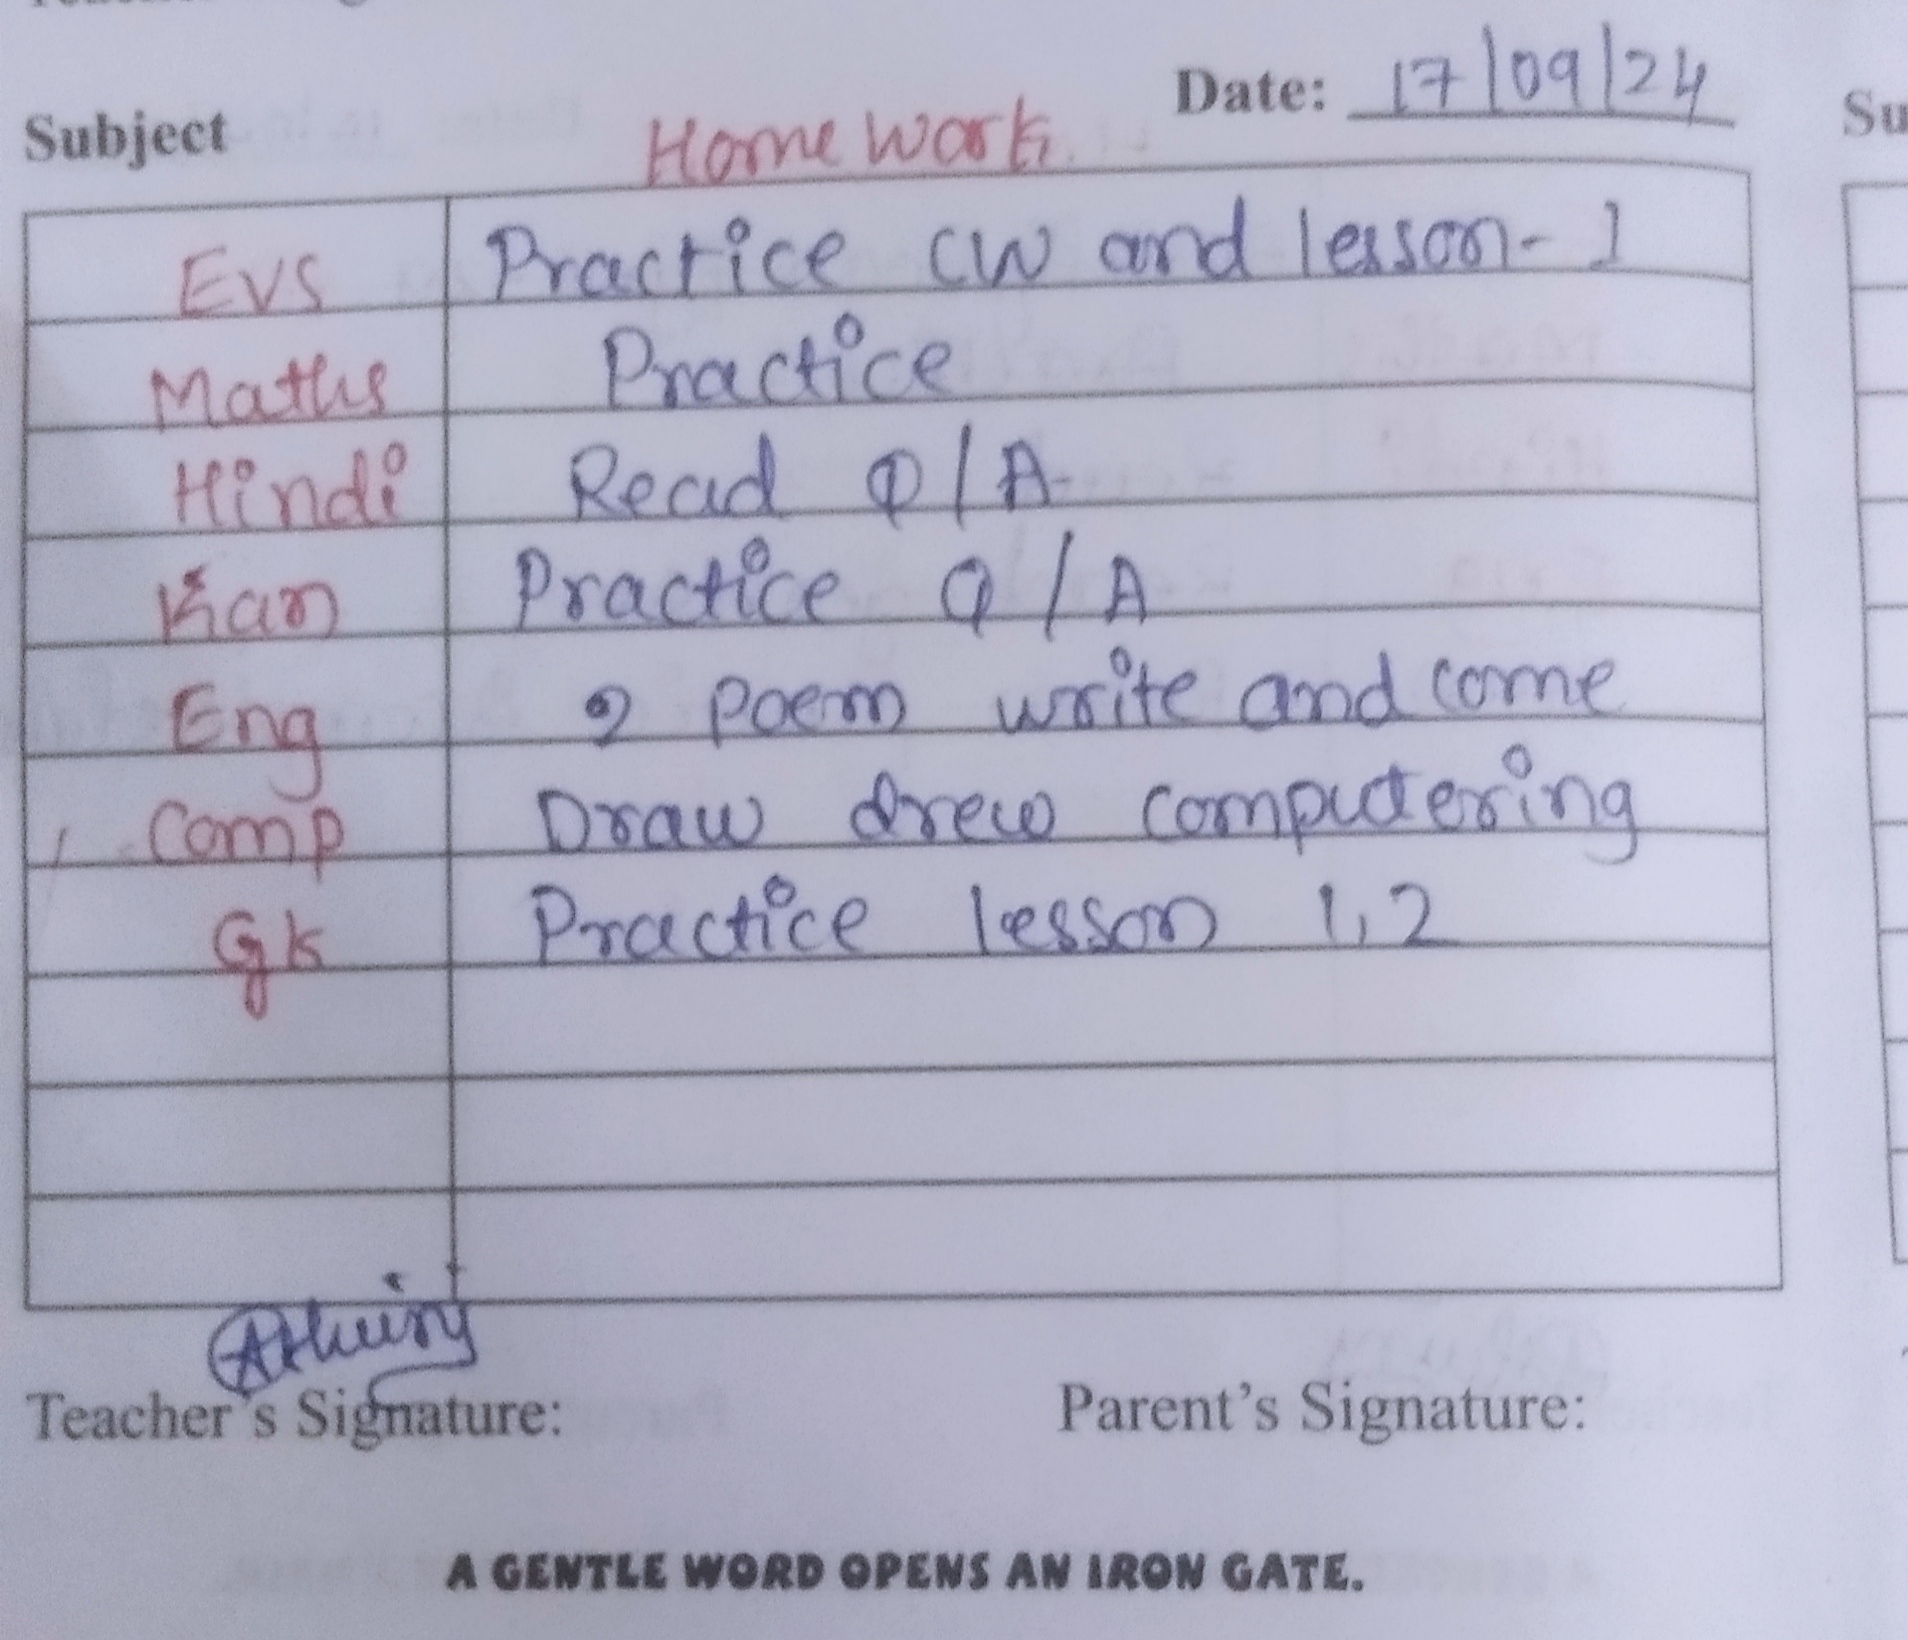 Date: 17/09/24
Subject Home Work Su
Evs Practice CW and lesson-1
Maths Practice
Hindi Read Q/A
Kan Practice Q/A
Eng 2 Poem write and come
Comp Draw drew computering
Gk Practice lesson 1,2
Teacher's Signature: Parent's Signature:
A GENTLE WORD OPENS AN IRON GATE.